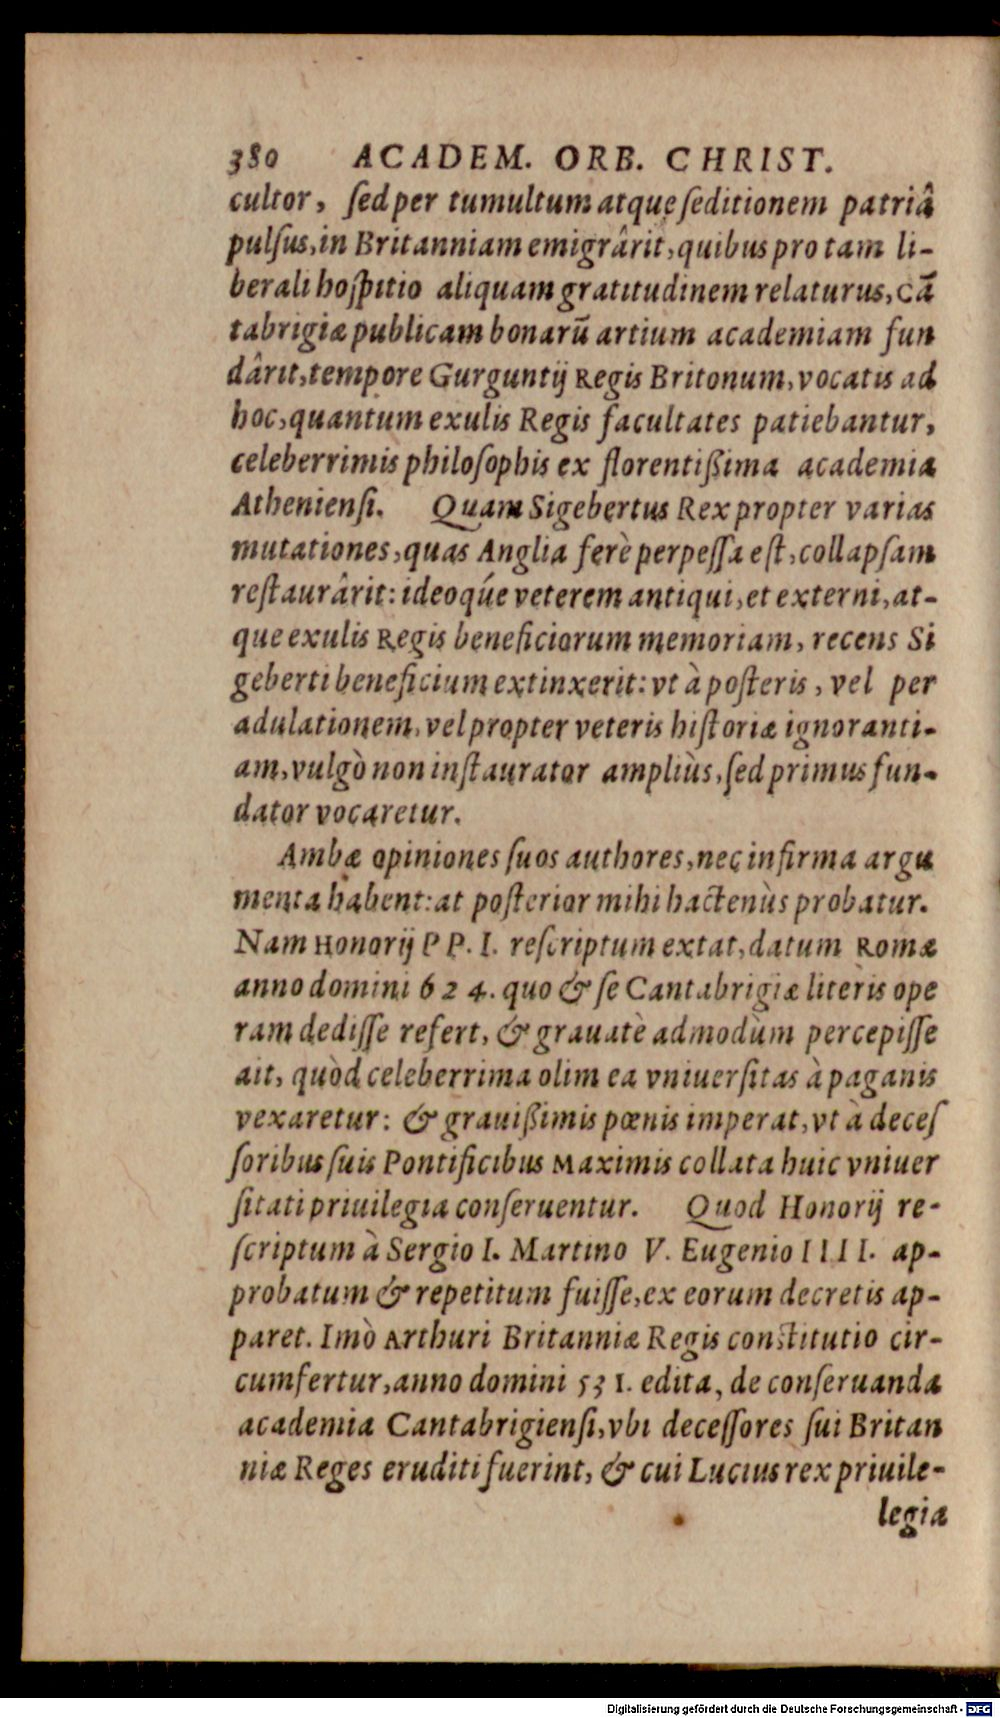 380 ACADEM. ORB. CHRIST.
cultor, ſed per tumultum atque ſeditionem patriâ
pulſus, in Britanniam emigrârit, quibus pro tam li-
berali hoſpitio aliquam gratitudinem relaturus, Cā
tabrigiæ publicam bonarū artium academiam fun
dârit, tempore Gurguntij Regis Britonum, vocatis ad
hoc, quantum exulis Regis facultates patiebantur,
celeberrimis philoſophis ex florentißima academia
Athenienſi. Quam Sigebertus Rex propter varias
mutationes, quas Anglia ferè perpeſſa eſt, collapſam
reſtaurârit: ideoq́ue veterem antiqui, et externi, at-
que exulis Regis beneficiorum memoriam, recens Si
geberti beneficium extinxerit: vt à poſteris, vel per
adulationem, vel propter veteris hiſtoriæ ignoranti-
am, vulgò non inſtaurator ampliùs, ſed primus fun-
dator vocaretur.
Ambæ opiniones ſuos authores, nec infirma argu
menta habent: at poſterior mihi hactenùs probatur.
Nam Honorij P P. I. reſcriptum extat, datum Romæ
anno domini 6 2 4. quo & ſe Cantabrigiæ literis ope
ram dediſſe refert, & grauatè admodùm percepiſſe
ait, quòd celeberrima olim ea vniuerſitas à paganis
vexaretur: & grauißimis pœnis imperat, vt à deceſ
ſoribus ſuis Pontificibus Maximis collata huic vniuer
ſitati priuilegia conſeruentur. Quod Honorij re-
ſcriptum à Sergio I. Martino V. Eugenio I I I I. ap-
probatum & repetitum fuiſſe, ex eorum decretis ap-
paret. Imò Arthuri Britanniæ Regis conſtitutio cir-
cumfertur, anno domini 531. edita, de conſeruanda
academia Cantabrigienſi, vbi deceſſores ſui Britan
niæ Reges eruditi fuerint, & cui Lucius rex priuile-
legia
Digitalisierung gefördert durch die Deutsche Forschungsgemeinschaft - DFG